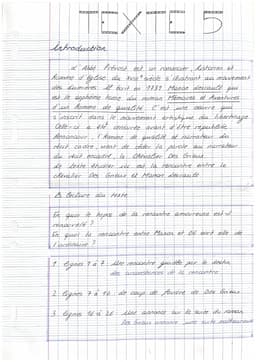 TEXTE 5
Introduction
L'Abbé Prévost est un romancier, historien et
homme d'église du XVIIIe siècle s'illustrant au mouvement
des Lumières. Il écrit en 1731 Manon Lescault qui
est le septième tome du roman Mémoires et Aventures
d'un homme de qualité. C'est une œuvre qui
s'inscrit dans le mouvement artistique du libertinage
Celle-ci a été censurée avant d'être republiée
Renoncour, l'homme de qualité et narrateur du
récit cadre, vient de céder la parole au narrateur
du récit encadré, le chevalier Des Grieux.
Le texte étudier ici est la rencontre entre le
chevalier Des Grieux et Manon Lescault
Lecture du texte
En quoi le topos de la rencontre amoureuse est-il
renouvelé ?
En quoi la rencontre entre Manon et DG sort elle de
l'ordinaire ?
1. lignes 1 à 7 : Une rencontre guidée par le destin
des circonstances de la rencontre
2. lignes 7 à 16 le coup de foudre de Des Grieux
3. lignes 16 à 26 : Une annonce sur la suite du roman
Des Grieux une suite malheureuse